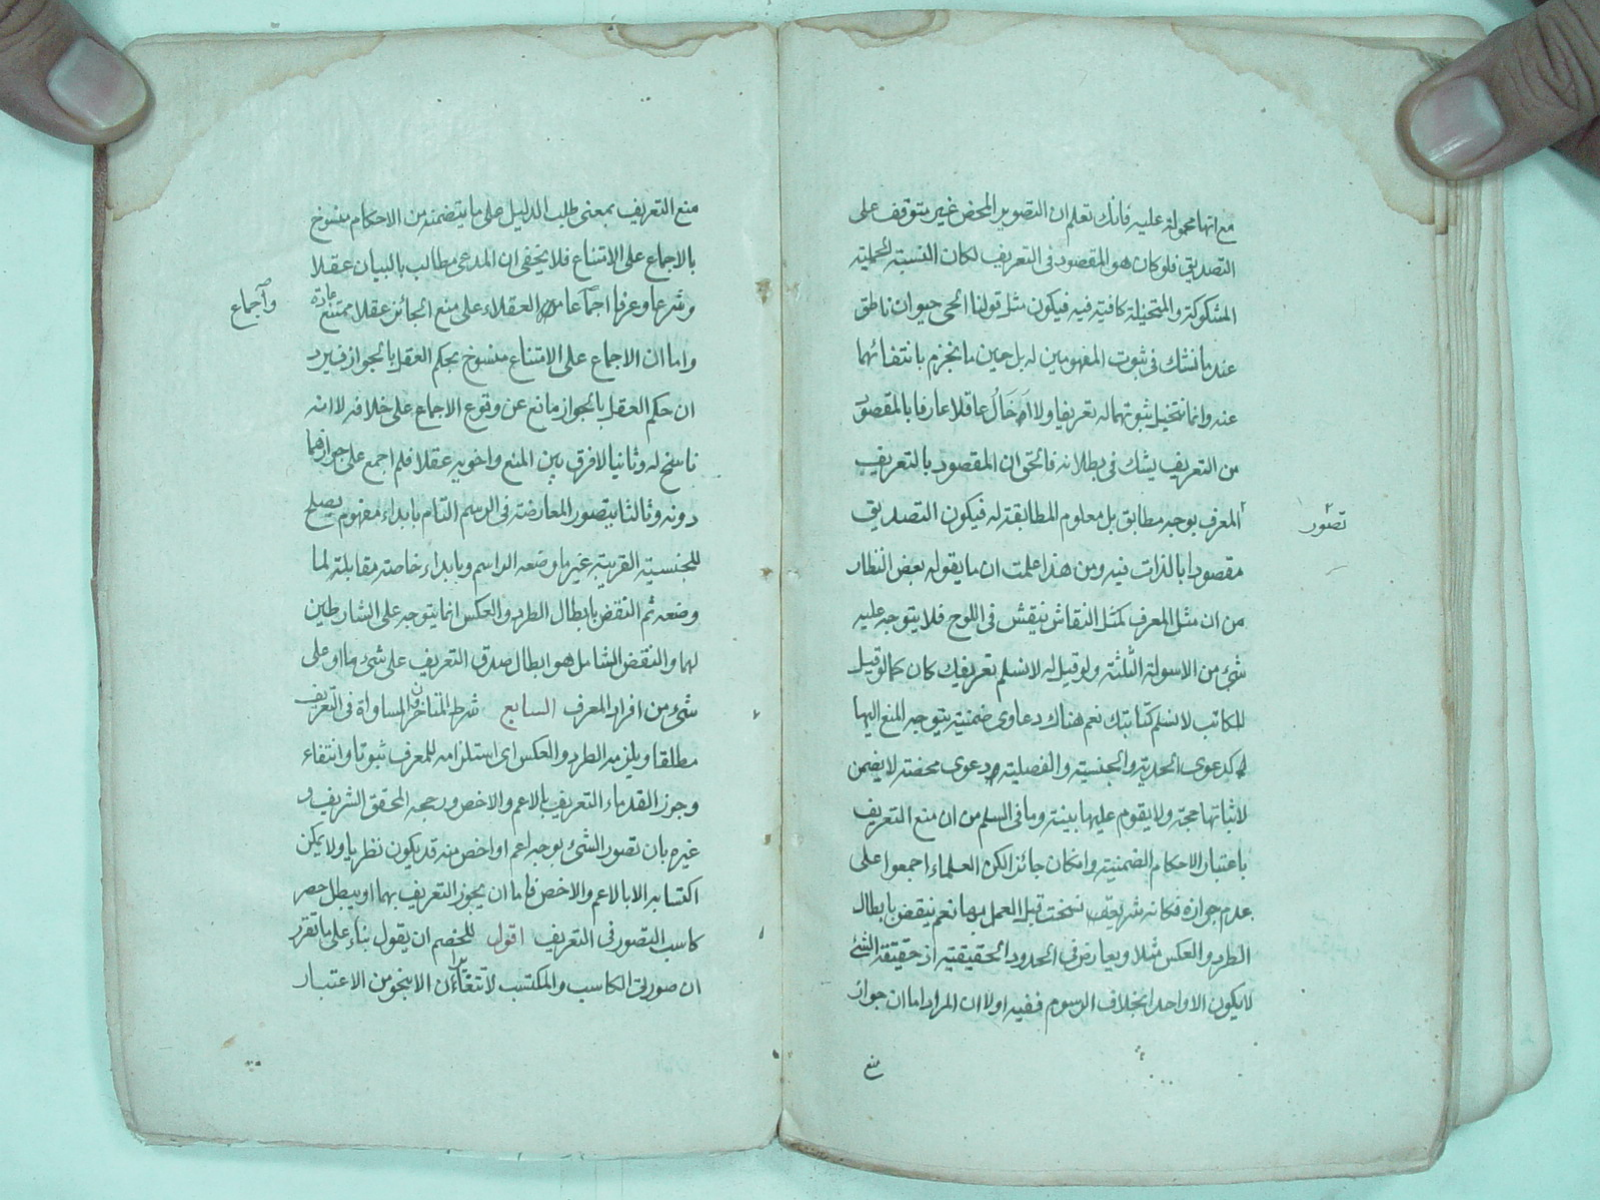 مع انها محمولة عليه فانك تعلم ان التصوير المحض غير متوقف على
التصديق فلو كان هو المقصود فى التعريف لكان النسبة الحملية
المشكوكة والمتخيلة كافية فيه فيكون مثل قولنا الحى حيوان ناطق
عند ما نشك فى ثبوت المفهومين له بل حين ما نجزم بانتفائهما
عنه وانما نتخيل ثبوتهما له تعريفا ولا عاقلا عارفا بالمقصود
من التعريف يشك فى بطلانه فالحق ان المقصود بالتعريف
تصور
المعرف بوجه مطابق بل معلوم المطابقة له فيكون التصديق
مقصودا بالذات فيه ومن هذا علمت ان ما يقوله بعض النظار
من ان مثل المعرف كمثل النقاش ينقش فى اللوح فلا يتوجه عليه
شئ من الاسولة الثلثة ولو قيل له لا نسلم تعريفك كان كما لو قيل
للكاتب لا نسلم كتابتك نعم هناك دعاوى ضمنية يتوجه المنع اليها
كدعوى الحدية والجنسية والفصلية دعوى محضة لا يضمن
لاثباتها حجة ولا يقوم عليها بينة وما فى السلم من ان منع التعريف
باعتبار الاحكام الضمنية وان كان جائزا لكن العلماء اجمعوا على
عدم جوازه فكانه شريعة نسخت قبل العمل بها نعم ينقض بابطال
الطرد والعكس مثلا ويعارض فى الحدود الحقيقية اذ حقيقة الشئ
لا يكون الا واحدا بخلاف الرسوم ففيه اولا ان المراد اما ان جواز
منع
منع التعريف بمعنى طلب الدليل على ما يتضمنه من الاحكام منسوخ
بالاجماع على الامتناع فلا يخفى ان المدعى مطالب بالبيان عقلا
وشرعا وعرفا اجماعا من العقلاء على منع الجائز عقلا ممتنع عادة
واجماع
واما ان الاجماع على الامتناع منسوخ بحكم العقل بالجواز فيرد
ان حكم العقل بالجواز مانع عن وقوع الاجماع على خلافه لا انه
ناسخ له وثانيا لا فرق بين المنع واخويه عقلا فلم اجمع على جوازهما
دونه وثالثا يتصور المعارضة فى الرسم التام بابداء مفهوم يصلح
للجنسية القريبة غير ما وضعه الراسم وبابداء خاصة مقابلة لما
وضعه ثم النقض بابطال الطرد والعكس انما يتوجه على الشارطين
لهما والنقض الشامل هو ابطال صدق التعريف على شئ ما او على
شئ من افراد المعرف السابع شرط المتاخرون المساواة فى التعريف
مطلقا ويلزمه الطرد والعكس اى استلزامه للمعرف ثبوتا وانتفاء
وجوز القدماء التعريف بالاعم والاخص ورجحه المحقق الشريف و
غيره بان تصور الشئ بوجه اعم او اخص منه قد يكون نظريا ولا يمكن
اكتسابه الا بالاعم والاخص فاما ان يجوز التعريف بهما او يبطل حصر
كاسب التصور فى التعريف اقول للخصم ان يقول بناء على ما تقرر
ان صورتى الكاسب والمكتسب لا تتغايران الا بنحو من الاعتبار